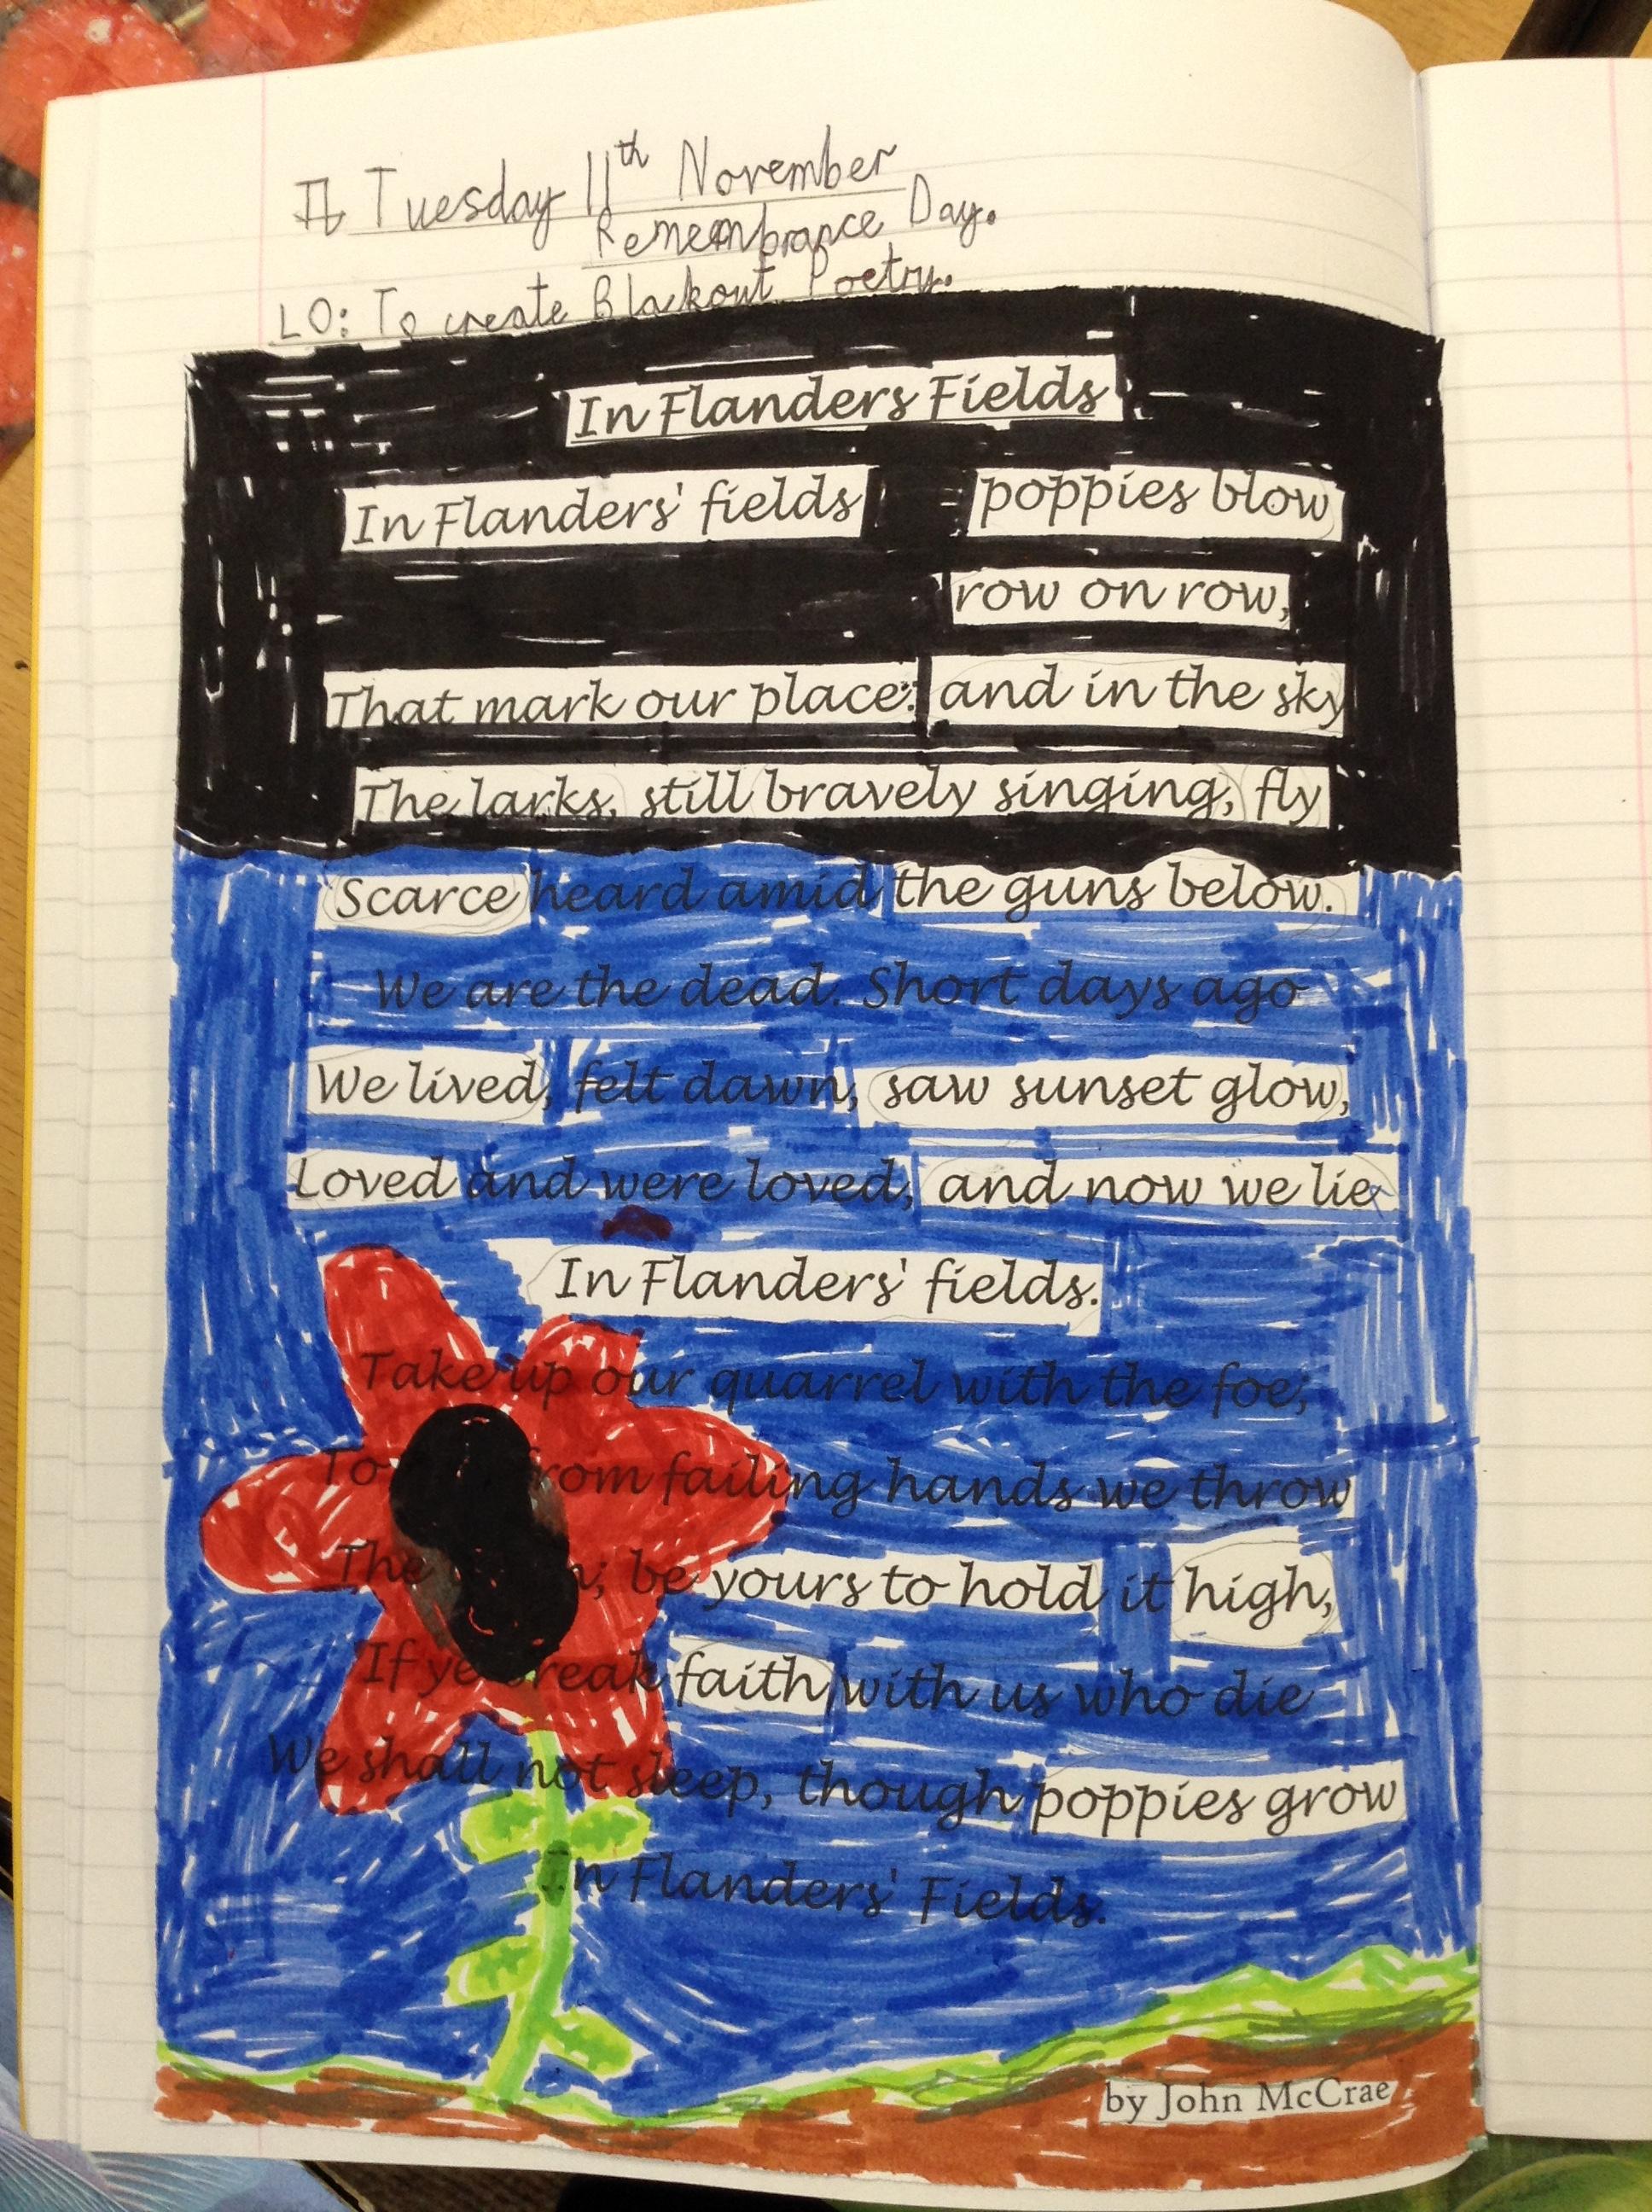 Tuesday 11th November
Remembrance Day.
LO: To create Blackout Poetry.
In Flanders Fields
In Flanders' fields poppies blow
row on row,
That mark our place: and in the sky
The larks, still bravely singing, fly
Scarce heard amid the guns below.
We are the dead. Short days ago
We lived, felt dawn, saw sunset glow,
Loved and were loved, and now we lie
In Flanders' fields.
Take up our quarrel with the foe;
To from failing hands we throw
The be yours to hold it high,
If ye break faith with us who die
We shall not sleep, though poppies grow
In Flanders' Fields.
by John McCrae